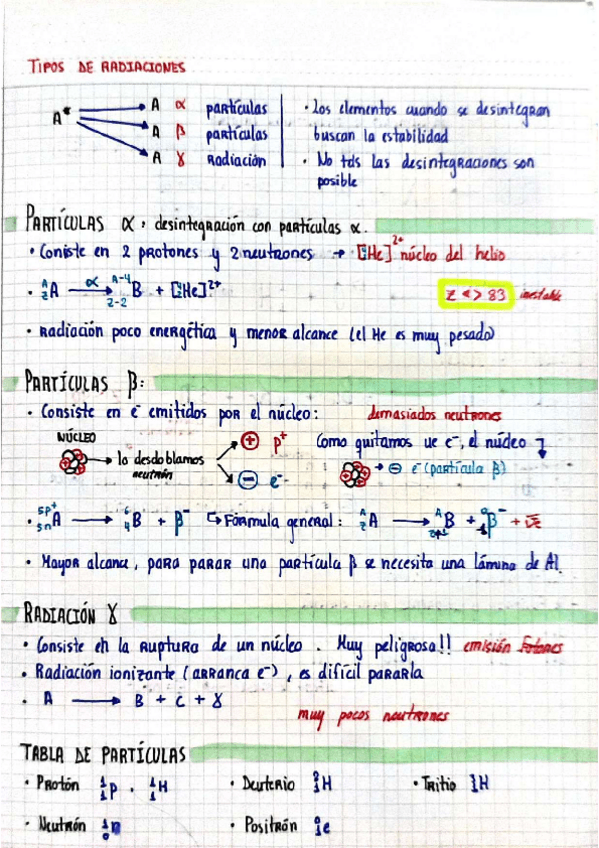 TIPOS DE RADIACIONES
A* → A α partículas
→ A β partículas
→ A γ Radiación
· Los elementos cuando se desintegran
buscan la estabilidad
· No tds las desintegraciones son
posible
PARTÍCULAS α: desintegración con partículas α.
· Consiste en 2 protones y 2 neutrones → [⁴₂He]²⁺ núcleo del helio
· ᴬ_Z A —α→ ᴬ⁻⁴_Z-2 B + [⁴₂He]²⁺ Z <> 83 inestable
· Radiación poco energética y menor alcance (el He es muy pesado)
PARTÍCULAS β:
· Consiste en e⁻ emitidos por el núcleo: demasiados neutrones
NÚCLEO → lo desdoblamos neutrón → ⊕ p⁺
→ ⊖ e⁻
Como quitamos ue e⁻, el núcleo
→ ⊖ e⁻ (partícula β)
· 5p⁺ 5n A → ⁶₄B + β⁻ Fórmula general: ᴬ_Z A → ᴬ_Z+1 B + ⁰₋₁β⁻ + ν̄e
· Mayor alcance, para parar una partícula β se necesita una lámina de Al.
RADIACIÓN γ
· Consiste en la ruptura de un núcleo. Muy peligrosa!! emisión fotones
· Radiación ionizante (arranca e⁻), es difícil pararla
· A → B + C + γ
muy pocos neutrones
TABLA DE PARTÍCULAS
· Protón ¹₁p · ¹₁H · Deuterio ²₁H · Tritio ³₁H
· Neutrón ¹₀n · Positrón ⁰₁e